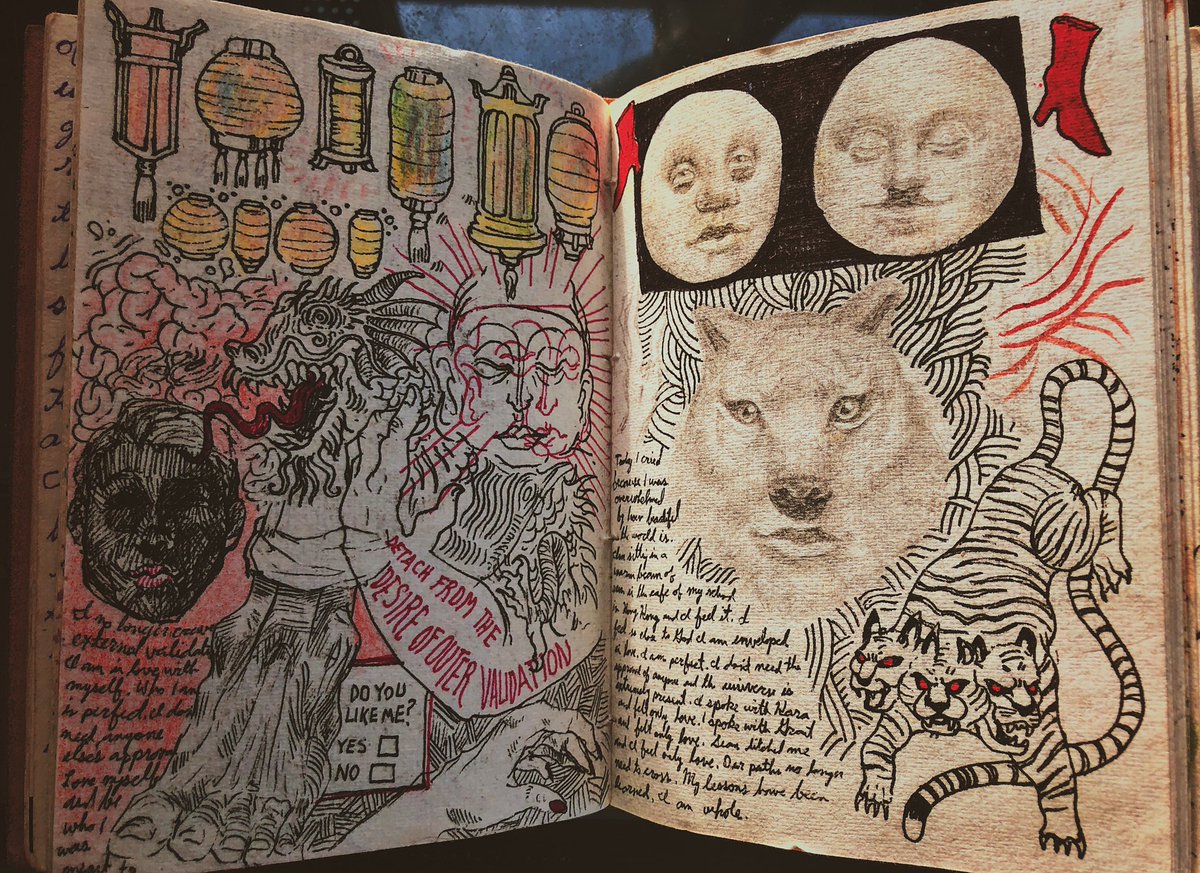 q
u
g
i
t
l
s
f
z
a
c
DETACH FROM THE
DESIRE OF OUTER VALIDATION
I no longer crave
external validation
I am in love with
myself. Who I am
is perfect. I don't
need anyone
else's approval
Love myself
and be
who I
was
meant to
DO YOU
LIKE ME?
YES
NO
Today I cried
because I was
overwhelmed
by how beautiful
the world is.
I am sitting in a
beam of
sun in the cafe of my school
in Hong Kong and I feel it. I
feel so close to God I am enveloped
in love. I am perfect. I don't need the
approval of anyone and the universe is
extremely present. I spoke with Kara
and felt only love. I spoke with Grant
and felt only love. Sean ditched me
and I feel only love. Our paths no longer
need to cross. My lessons have been
learned, I am whole.